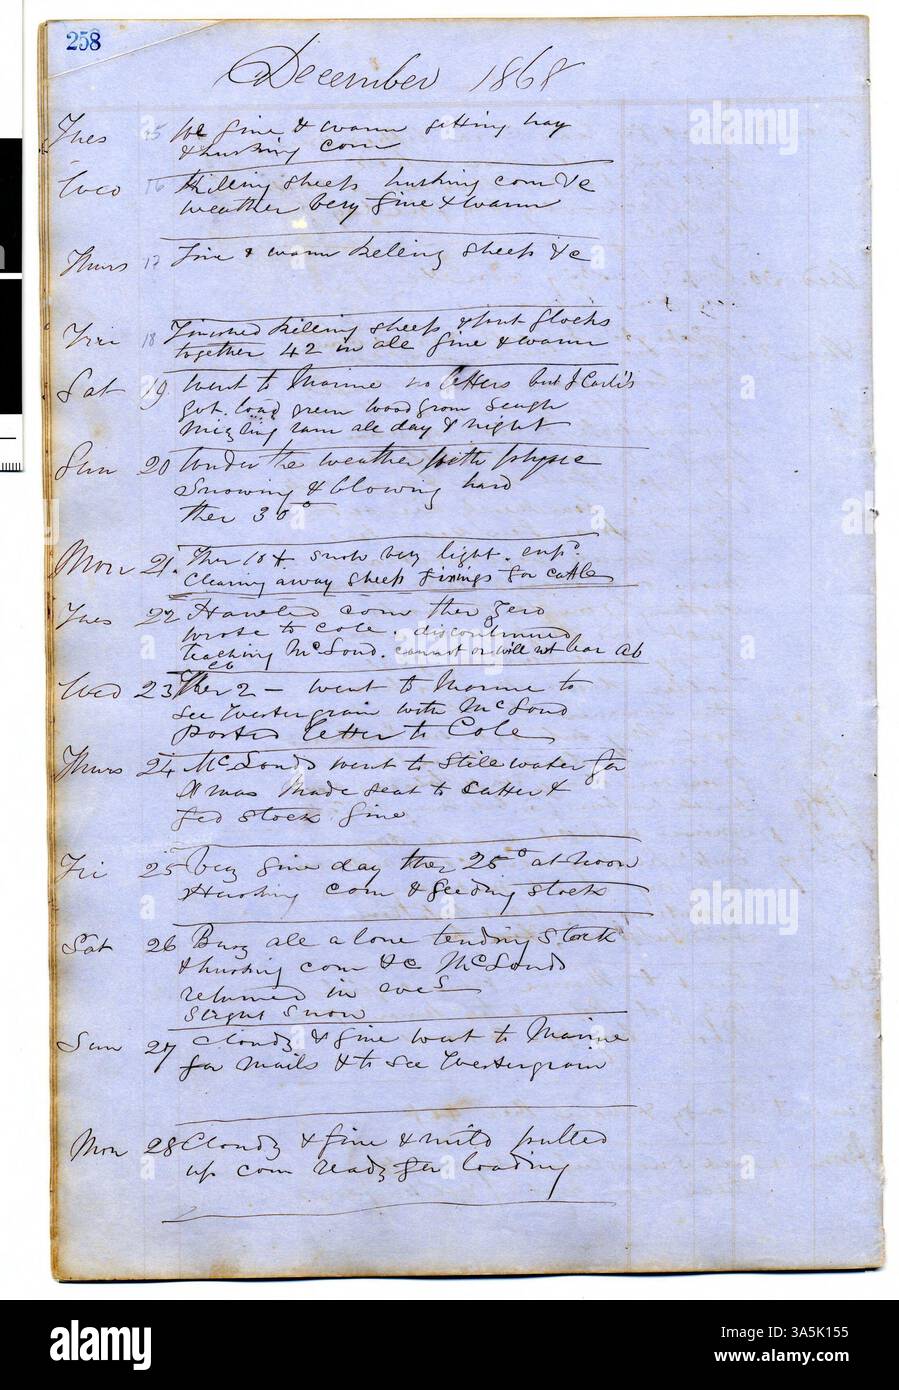 258
December 1868
Tues 15 We fine & warm getting hay
& husking corn
Wed 16 Killing sheep husking corn &c
weather very fine & warm
Thurs 17 Fine & warm killing sheep &c
Fri 18 Finished killing sheep & flocks
together 42 in all fine & warm
Sat 19 went to Marine no letters but J Carli's
got load green wood from
mizzling rain all day & night
Sun 20 Under the weather with physic
Snowing & blowing hard
ther 30°
Mon 21. Ther 10 + snow very light.
clearing away sheep fixings for cattle
Tues 22 Hawled corn ther zero
wrote to Cole. discontinued
teaching McLoud. cannot or will not lear ab
Wed 23 Ther 2 – went to Marine to
see Westergrain with McLoud
Posted letter to Cole
Thurs 24 McLouds went to Stillwater for
Xmas Made seat to cutter &
fed stock fine
Fri 25 Very fine day ther 25° at noon
& Husking corn & feeding stock
Sat 26 Busy all alone tending Stock
& husking corn &c McLouds
returned in eve
Slight Snow
Sun 27 Cloudy & fine went to Marine
for mails & to see Westergrain
Mon 28 Cloudy & fine & mild pulled
up corn ready for loading
alamy
Image ID: 3A5K155
www.alamy.com